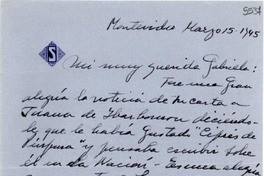 5537
Montevideo Marzo 15-1945
S
Mi muy querida Gabriela:
Fue una gran
alegría la noticia de tu carta a
Juana de Ibarbourou diciéndo-
le que le había gustado "Ciprés de
Púrpura" y pensaba escribir sobre
él en La Nación - Es una alegría